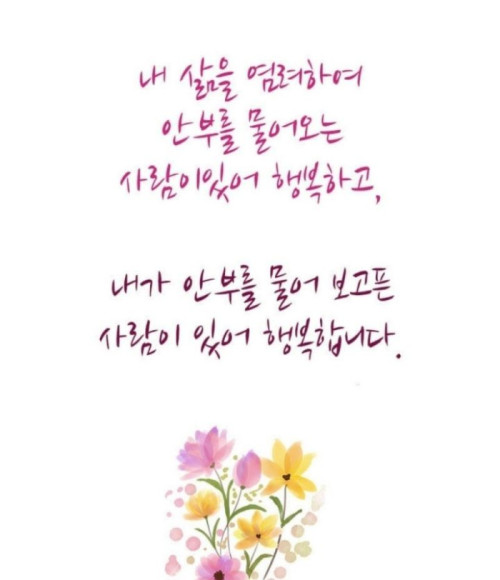 내 삶을 염려하여
안부를 물어오는
사람이있어 행복하고,
내가 안부를 물어 보고픈
사람이 있어 행복합니다.